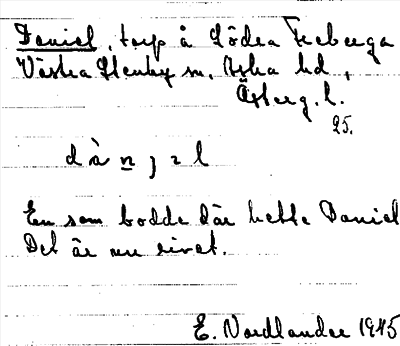 Daniel, torp å Södra Freberga
Västra Stenby sn, Aska hd,
Österg. l.
25.
En som bodde där hette Daniel
Det är nu rivet.
E. Nordlander 1945